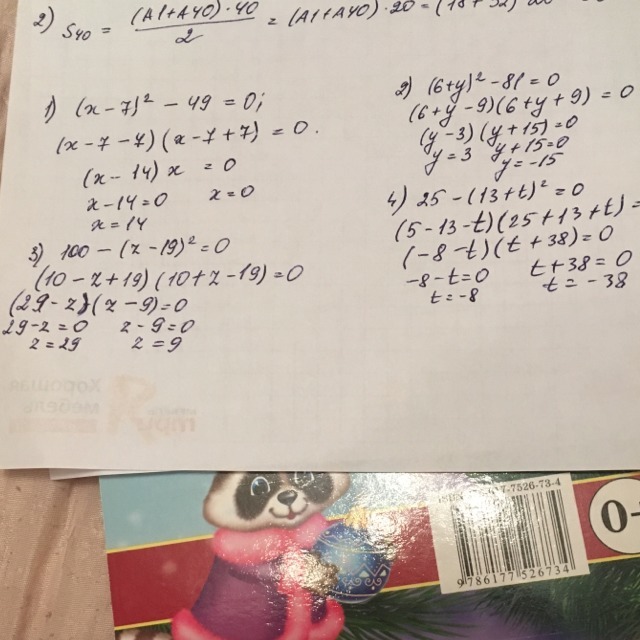 2) S₄₀ = (A1+A40)·40 / 2 = (A1+A40)·20 =
1) (x-7)² - 49 = 0;
(x-7-7)(x-7+7) = 0.
(x-14)x = 0
x-14=0 x=0
x=14
2) (6+y)² - 81 = 0
(6+y-9)(6+y+9) = 0
(y-3)(y+15)=0
y=3 y+15=0
y=-15
3) 100-(z-19)²=0
(10-z+19)(10+z-19)=0
(29-z)(z-9)=0
29-z=0 z-9=0
z=29 z=9
4) 25-(13+t)²=0
(5-13-t)(25+13+t)=
(-8-t)(t+38)=0
-8-t=0 t+38=0
t=-8 t=-38
Хорошая
мебель
7526-73-4
9786177526734
0